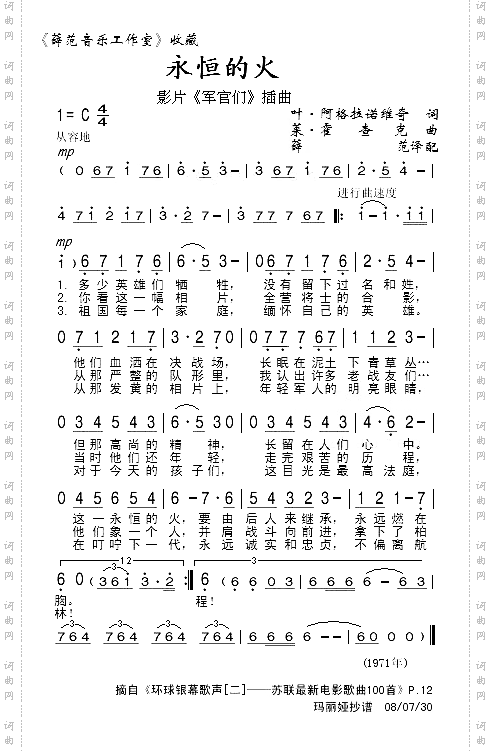 《薛范音乐工作室》收藏
永恒的火
影片《军官们》插曲
1=C 4/4
叶·阿格拉诺维奇 词
莱·霍 查 克 曲
薛 范译配
从容地
mp
( 0 67 1 76 | 6·5 3- | 3 67 1 76 | 2·5 4- |
进行曲速度
4 71 2 17 | 3·2 7- | 3 77 7 67 | 1̇-1·11 |
mp
1) 6 7 1 7 6 | 6·5 3- | 0 6 7 1 7 6 | 2·5 4- |
1. 多少英雄们 牺 牲， 没有留下过 名和姓，
2. 你看这一幅 相 片， 全营将士的 合 影，
3. 祖国每一个 家 庭， 缅怀自己的 英 雄。
0 7 1 2 1 7 | 3·2 7 0 | 0 7 7 7 6 7 | 1 1 2 3- |
他们血洒在 决战场， 长眠在泥土 下青草丛…
从那严整的 队形里， 我认出许多 老战友们…
从那发黄的 相片上， 年轻军人的 明亮眼睛，
0 6 7 1 7 6 | 6·5 3 0 | 0 3 4 5 4 3 | 4·6 2- |
但那高尚的 精 神， 长留在人们 心 中。
当时他们还 年 轻， 走完艰苦的 历 程，
对于今天的 孩子们， 这目光是最 高法庭，
0 3 4 5 6 5 4 | 0 4 5 6 4 5 3 | 1 2 1-7 |
这一永恒的火，要由后人来继承，永远燃在
他们象一个人，并肩战斗向前进，拿下了柏
在叮咛下一代，永远诚实和忠贞，不偏离航
12
3
6 0 (361 3·2 :| 6 ( 6 6 0 3 | 6 6 6 6 0 3 |
胸。 程！
林！
3 3 3 3
764 764 764 764 | 6 6 6-- | 6 0 0 0 ) ||
(1971年)
摘自《环球银幕歌声[二]——苏联最新电影歌曲100首》P.12
玛丽娅抄谱 08/07/30
词曲网